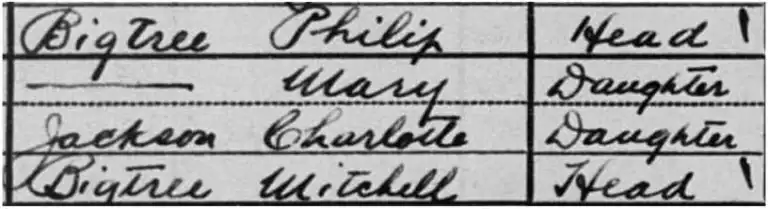 Bigtree Philip Head 1
—— Mary Daughter
Jackson Charlotte Daughter
Bigtree Mitchell Head 1